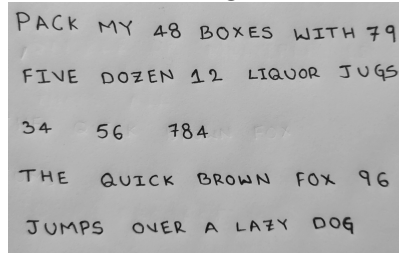 PACK MY 48 BOXES WITH 79
FIVE DOZEN 12 LIQUOR JUGS
34 56 784
THE QUICK BROWN FOX 96
JUMPS OVER A LAZY DOG